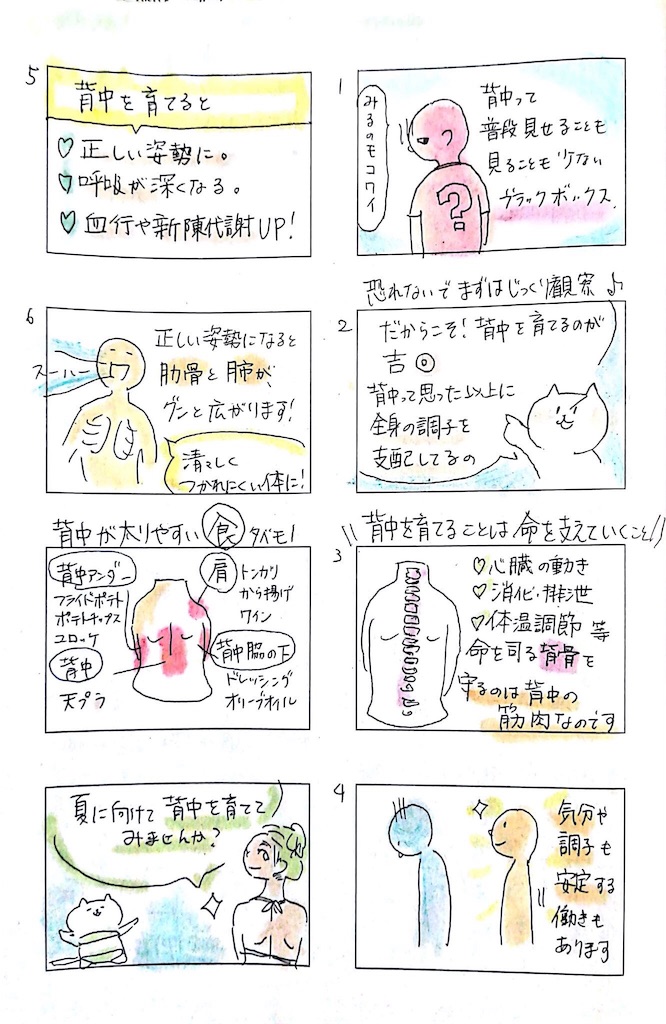 1
背中って
普段見せることも
見ることも少ない
ブラックボックス.
みるのモコワイ
?
恐れないでまずはじっくり観察♪
2
だからこそ!背中を育てるのが
吉◎
背中って思った以上に
全身の調子を
支配してるの
\\背中を育てることは命を支えていくこと//
3
♡心臓の動き
♡消化・排泄
♡体温調節 等
命を司る背骨を
守るのは背中の
筋肉なのです
4
気分や
調子も
安定する
働きも
あります
5
背中を育てると
♡正しい姿勢に。
♡呼吸が深くなる。
♡血行や新陳代謝UP!
6
正しい姿勢になると
肋骨と肺が、
グンと広がります!
スーハー
清々しく
つかれにくい体に!
背中が太りやすい食タベモノ
背中アンダー
フライドポテト
ポテトチップス
コロッケ
背中
天プラ
肩
トンカツ
から揚げ
ワイン
背中脇の下
ドレッシング
オリーブオイル
夏に向けて背中を育てて
みませんか?